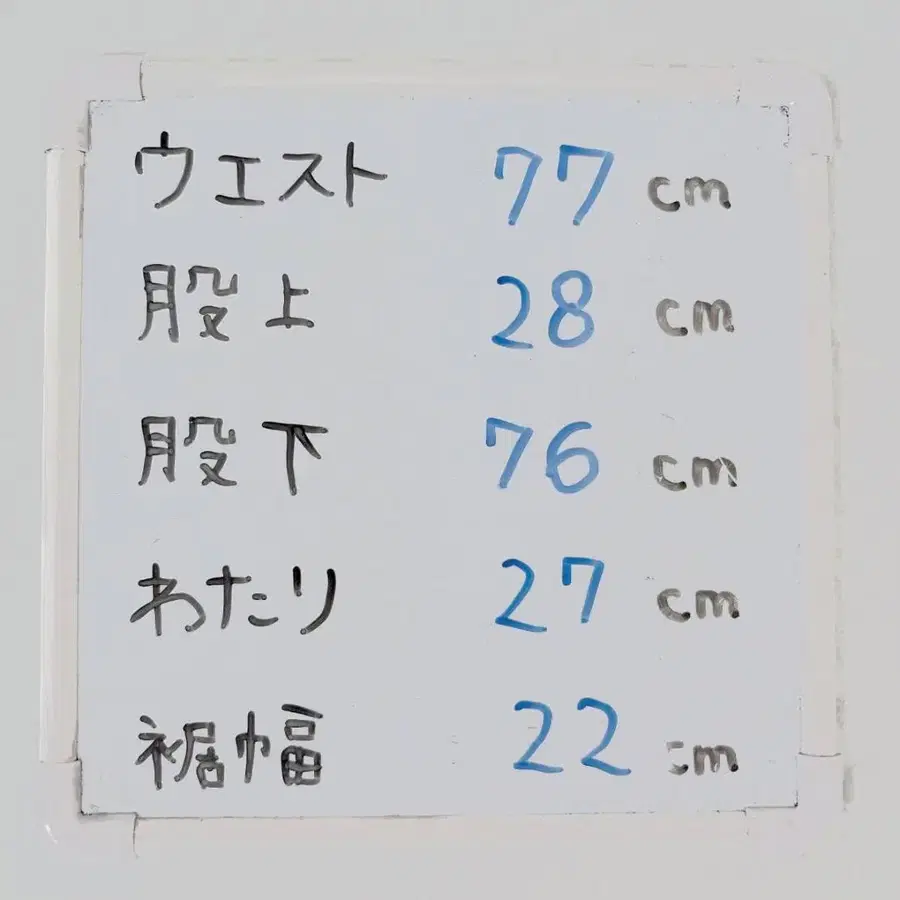 ウエスト 77 cm
股上 28 cm
股下 76 cm
わたり 27 cm
裾幅 22 cm